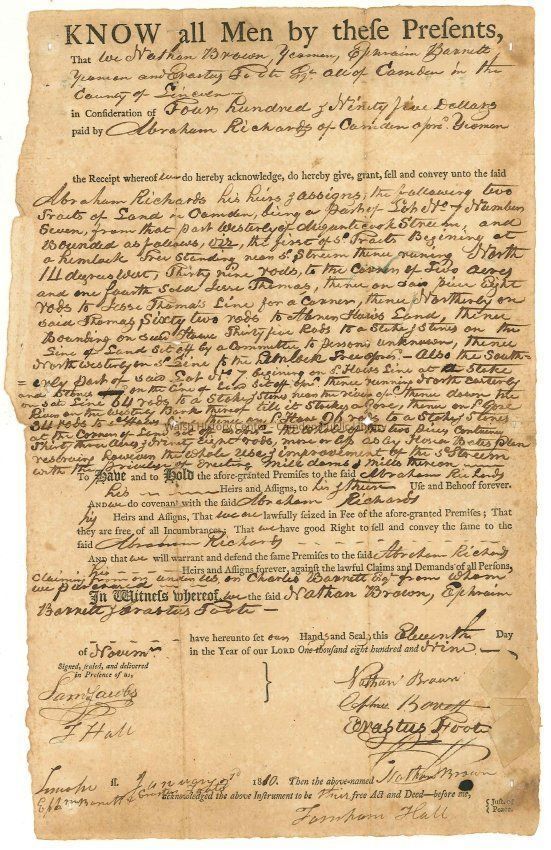 KNOW all Men by these Presents,
That We Nathan Brown, Yeoman, Ephraim Barrett
Yeoman and Erastus Foote Esqr. all of Camden in the
County of Lincoln
in Consideration of Four hundred & Ninety five Dollars
paid by Abraham Richards of Camden aforesd. Yeoman
the Receipt whereof we do hereby acknowledge, do hereby give, grant, sell and convey unto the said
Abraham Richards his heirs & assigns, the following two
Tracts of Land in Camden, being a part of Lot No. 7 Number
Seven, from that part Westerly of Stream, and
Bounded as follows, viz, the first of sd. Tracts Begining at
a hemlock Tree standing near sd. Stream thence runing North
14 degrees West, Thirty nine rods, to the Corner of Two acres
and one fourth sold Jesse Thomas, thence on said piece Eight
rods to Jesse Thomas Line for a Corner, thence Northerly on
said Thomas Sixty two rods to Abner Land, thence
Bounding on said Thirty five Rods to a Stake & Stones on the
Line of Land set off by a Committee to persons unknown, thence
North Westerly on sd. Line to the Hemlock Tree aforesd. Also the South
erly part of said Lot No. 7 begining on sd. Line at a Stake
and Stones on the Line of Land set off aforesd. thence running North easterly
on sd. Line 64 rods to a Stake & Stones near the river thence down the
River on the Westerly Bank thereof till it Strikes a
34 rods to a Stake & Stones
at the Corner two pieces containg
Thirty Acres & rods, more or less as by plan
reserving however the whole Use & improvement of the sd. Stream
with the Privilege of Erecting Mill dams & Mills theron
To Have and to Hold the afore-granted Premises to the said Abraham Richards
his Heirs and Assigns, to his & their Use and Behoof forever.
AND we do covenant with the said Abraham Richards
his Heirs and Assigns, That we are lawfully seized in Fee of the afore-granted Premises; That
they are free of all Incumbrances; That we have good Right to sell and convey the same to the
said Abraham Richards
AND that we will warrant and defend the same Premises to the said Abraham Richards
his Heirs and Assigns forever, against the lawful Claims and Demands of all Persons,
Claiming from or under us, or Charles Barrett Esqr. from whom
we purchased
In Witness whereof we the said Nathan Brown, Ephraim
Barrett & Erastus Foote
have hereunto set our Hands and Seals, this Eleventh Day
of Novemr. in the Year of our LORD One thousand eight hundred and Nine
Signed, sealed, and delivered
in Presence of us,
Sam Jacobs
F Hall
Nathan Brown
Erastus Foote
Lincoln ss. January 2d 1810. Then the above-named Nathan Brown
Ephm Barrett & Erastus Foote acknowledged the above Instrument to be their free Act and Deed—before me,
Farnham Hall
Just. of
Peace.